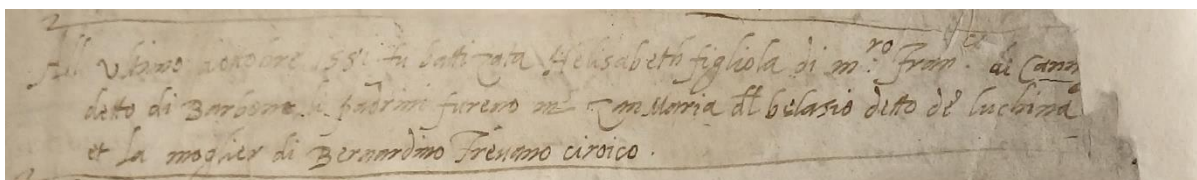 All ultimo ottobre 1551 fu batizata Helisabeth figliola di m.ro Fran.co di Cann
detto di Barbone li padrini fureno m.e Zan Maria dl belasio detto de luchina
et la moglier di Bernardino Trevano ciroico.